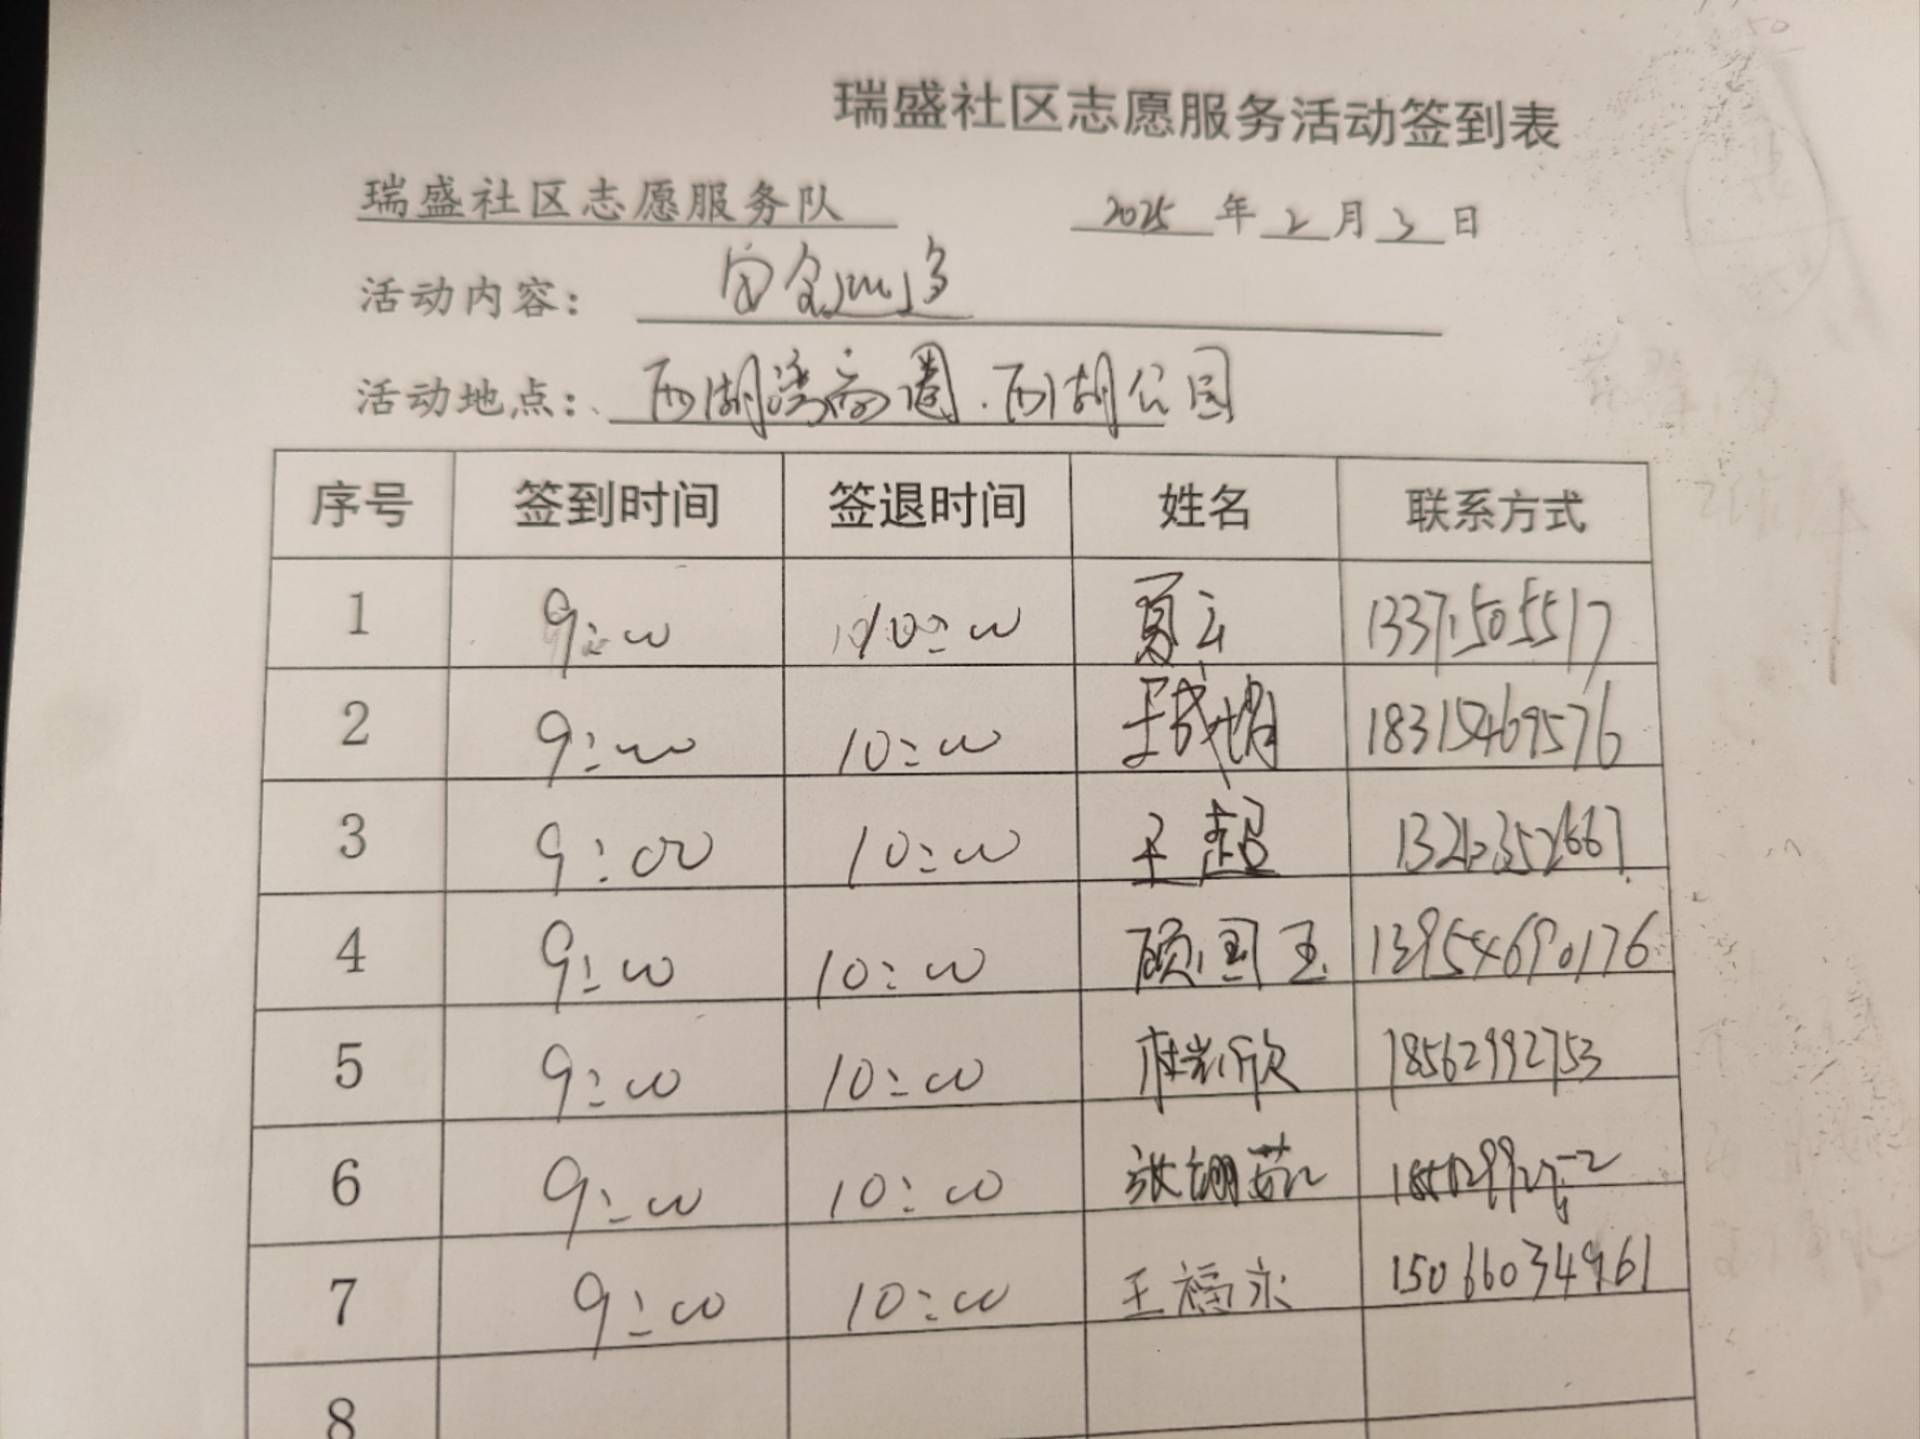 瑞盛社区志愿服务活动签到表
瑞盛社区志愿服务队 2025年2月3日
活动内容：安全巡逻
活动地点：西湖湾商圈.西湖公园
序号 签到时间 签退时间 姓名 联系方式
1 9:00 10:00 夏云 13371505517
2 9:00 10:00 王成娟 18315469576
3 9:00 10:00 王超
4 9:00 10:00 顾国玉 13954690176
5 9:00 10:00 18562992753
6 9:00 10:00
7 9:00 10:00 王福永 15066034961
8